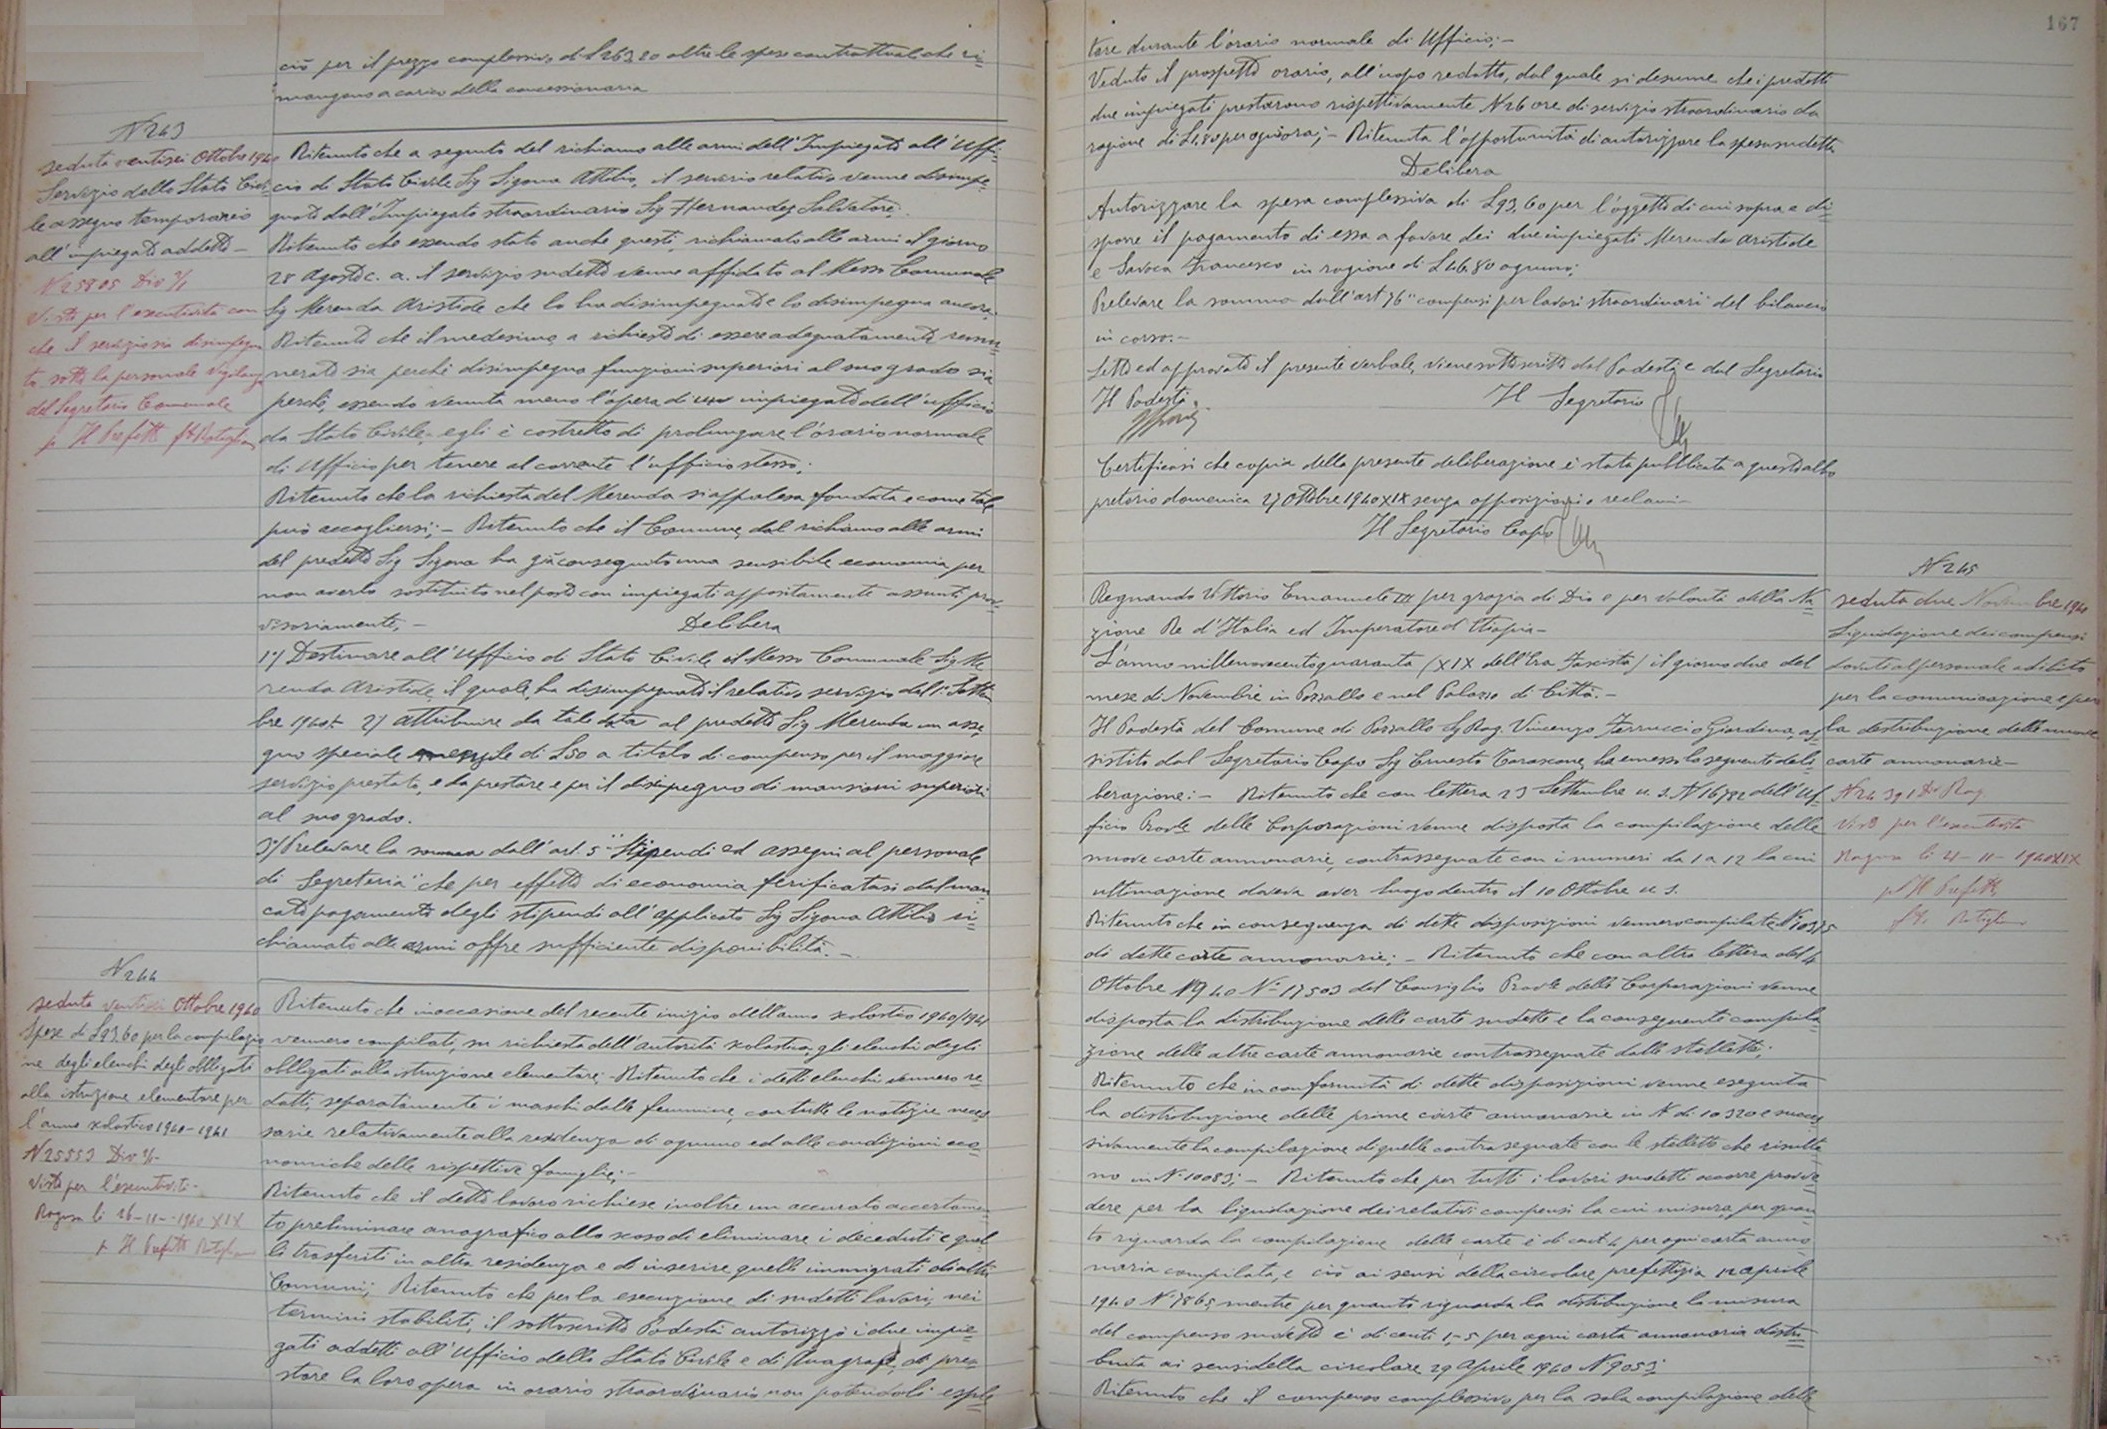 ciò per il prezzo complessivo di L 263,20 oltre le spese contrattuali che ri=
mangono a carico della concessionaria
N 243
seduta ventisei Ottobre 1940
Servizio dello Stato Civi=
le assegno temporaneo
all'impiegato addetto -
N 25805 Div 2/1
Visto per l'esecutività con
che il servizio sia disimpegna
to sotto la personale vigilanza
del Segretario Comunale
p Il Prefetto
Ritenuto che a seguito del richiamo alle armi dell'Impiegato all'Uffi=
cio di Stato Civile Sig Sigona Attilio, il servizio relativo venne disimpe=
gnato dall'Impiegato straordinario Sig Hernandez Salvatore.
Ritenuto che essendo stato anche questi, richiamato alle armi il giorno
28 Agosto c. a. il servizio sudetto venne affidato al Messo Comunale
Sig Merenda Aristide che lo ha disimpegnato e lo disimpegna ancora;
Ritenuto che il medesimo a richiesto di essere adeguatamente remu=
nerato sia perchè disimpegna funzioni superiori al suo grado sia
perchè, essendo venuta meno l'opera di un impiegato dell'ufficio
da Stato Civile, egli è costretto di prolungare l'orario normale
di Ufficio per tenere al corrente l'ufficio stesso;
Ritenuto che la richiesta del Merenda si appalesa fondata e come tale
può accogliersi; - Ritenuto che il Comune, dal richiamo alle armi
del predetto Sig Sigona ha già conseguito una sensibile economia per
non averlo sostituito nel posto con impiegati appositamente assunti prov=
visoriamente, -
Delibera
1°) Destinare all'Ufficio di Stato Civile il Messo Comunale Sig Me
renda Aristide, il quale, ha disimpegnato il relativo servizio dal 1° Settem
bre 1940 - 2) attribuire da tale data al predetto Sig Merenda un asse=
gno speciale mensile di L 50 a titolo di compenso per il maggiore
servizio prestato, e da prestare e per il disimpegno di mansioni superiori
al suo grado.
3°) Prelevare la somma dall'art. 5 "Stipendi ed assegni al personale
di Segreteria" che per effetto di economia verificatasi dal man
cato pagamento degli stipendi all'applicato Sig Sigona Attilio ri=
chiamato alle armi offre sufficiente disponibilità. -
N 244
seduta ventisei Ottobre 1940
Spese di L 93,60 per la compilazio
ne degli elenchi degli obbligati
alla istruzione elementare per
l'anno scolastico 1940-1941
N 25553 Div 2/1
Visto per l'esecutività -
Ragusa li 16-11-1940 XIX
p Il Prefetto
Ritenuto che in occasione del recente inizio dell'anno scolastico 1940/1941
vennero compilati, su richiesta dell'autorità scolastica, gli elenchi degli
obbligati alla istruzione elementare; - Ritenuto che i detti elenchi vennero re
datti, separatamente i maschi dalle femmine, con tutte le notizie neces
sarie relativamente alla residenza di ognuno ed alle condizioni eco
nomiche delle rispettive famiglie; -
Ritenuto che il detto lavoro richiese inoltre un accurato accertamen=
to preliminare anagrafico allo scopo di eliminare i deceduti e quel
li trasferiti in altra residenza e di inserire quelli immigrati di altri
Comuni; Ritenuto che per la esecuzione di sudetti lavori, nei
termini stabiliti, il sottoscritto Podestà autorizzò i due impie=
gati addetti all'Ufficio dello Stato Civile e di Anagrafe, di pre=
stare la loro opera in orario straordinario non potendoli esple
167
tare durante l'orario normale di Ufficio; -
Veduto il prospetto orario, all'uopo redatto, dal quale si desume che i predetti
due impiegati prestarono rispettivamente N 26 ore di servizio straordinario da
ragione di L 1,80 per ogni ora; - Ritenuta l'opportunità di autorizzare la spesa sudetta
Delibera
Autorizzare la spesa complessiva di L 93,60 per l'oggetto di cui sopra e di=
sporre il pagamento di essa a favore dei due impiegati Merenda Aristide
e Savoca Francesco in ragione di L 46,80 ognuno;
Prelevare la somma dall'art 76 "compensi per lavori straordinari" del bilancio
in corso. -
Letto ed approvato il presente verbale, viene sottoscritto dal Podestà e dal Segretario
Il Podestà
Il Segretario
Certificasi che copia della presente deliberazione è stata pubblicata a quest'albo
pretorio domenica 27 Ottobre 1940 XIX senza opposizioni o reclami -
Il Segretario Capo
Regnando Vittorio Emanuele III per grazia di Dio e per volontà della Na
zione Re d'Italia ed Imperatore d'Etiopia -
L'anno millenovecentoquaranta (XIX dell'Era Fascista) il giorno due del
mese di Novembre in Pozzallo e nel Palazzo di Città. -
Il Podestà del Comune di Pozzallo Sig Rag. Vincenzo Ferruccio Giardina, as
sistito dal Segretario Capo Sig Ernesto Tarascone, ha emesso la seguente deli
berazione: - Ritenuto che con lettera 23 Settembre u. s. N 16782 dell'Uf=
ficio Prov.le delle Corporazioni venne disposta la compilazione delle
nuove carte annonarie, contrassegnate con i numeri da 1 a 12 la cui
ultimazione doveva aver luogo dentro il 10 Ottobre u. s.
Ritenuto che in conseguenza di dette disposizioni vennero compilate N° 10325
di dette carte annonarie; - Ritenuto che con altra lettera del 4
Ottobre 1940 N° 17503 del Consiglio Prov.le delle Corporazioni venne
disposta la distribuzione delle carte sudette e la conseguente compila=
zione delle altre carte annonarie contrassegnate dalle stellette;
Ritenuto che in conformità di dette disposizioni venne eseguita
la distribuzione delle prime carte annonarie in N di 10320 e succes
sivamente la compilazione di quelle contrassegnate con le stellette che risulta
no in N° 10083; - Ritenuto che per tutti i lavori sudetti occorre provve=
dere per la liquidazione dei relativi compensi la cui misura, per quan=
to riguarda la compilazione delle carte è di cent 4 per ogni carta anno=
naria compilata, e ciò ai sensi della circolare prefettizia 12 aprile
1940 N° 7865, mentre per quanto riguarda la distribuzione la misura
del compenso sudetto è di cent 1,5 per ogni carta annonaria distri=
buita ai sensi della circolare 29 Aprile 1940 N° 9053;
Ritenuto che il compenso complessivo per la sola compilazione delle
N 245
seduta due Novembre 1940
Liquidazione dei compensi
dovuti al personale adibito
per la comunicazione e per
la distribuzione delle nuove
carte annonarie -
N 24391 Div Rag.
Visto per l'esecutività
Ragusa li 4-11-1940 XIX
p Il Prefetto